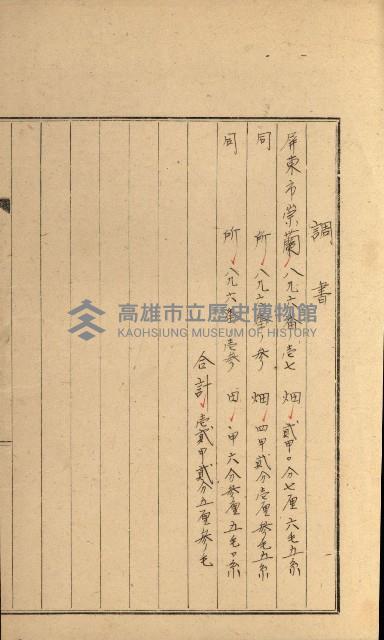 調書
屏東市崇蘭八九六番壱七 畑 貳甲〇分七厘六毛五糸
同 所 八九六番 参 畑 四甲貳分壱厘参毛五糸
同 所 八九六番 壱参 田 甲六分参厘五毛〇糸
合計 壱貳甲貳分五厘参毛
高雄市立歷史博物館
KAOHSIUNG MUSEUM OF HISTORY